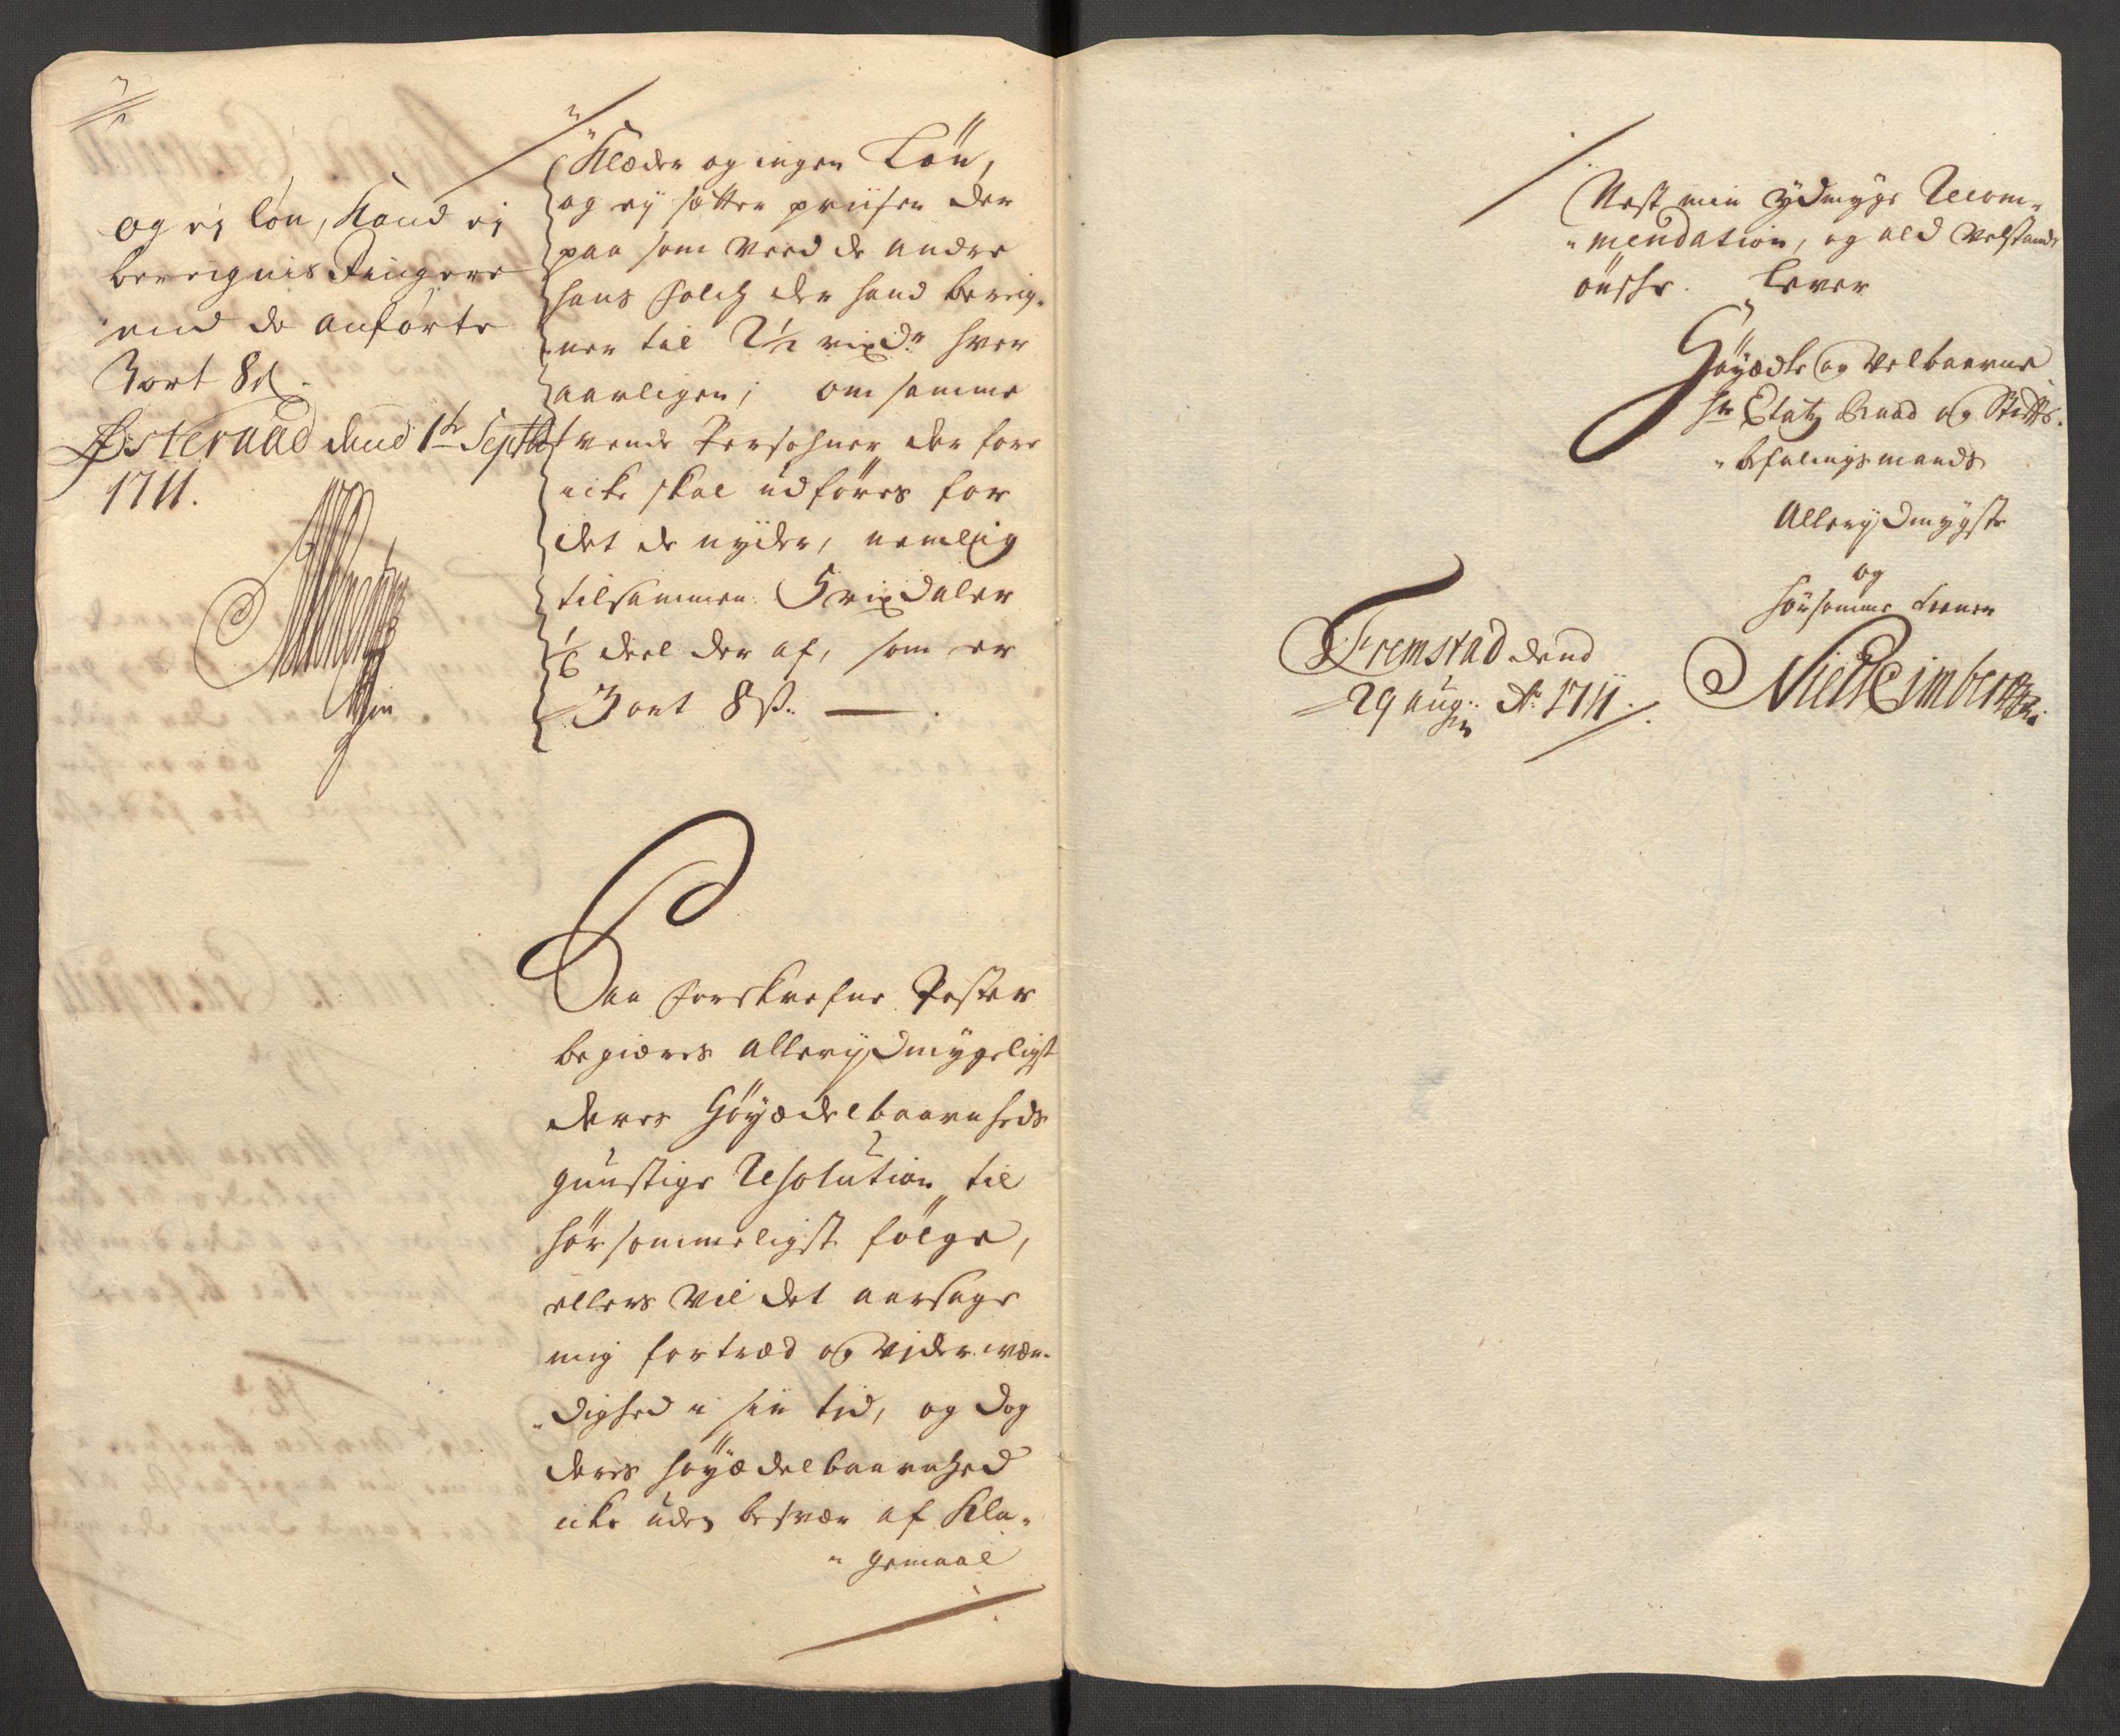 og ej lön, kand ej
beregnis Ringere
end de anförte
3 ort 8 s.
Østeraad dend 1te Septbr
1711.
Klæder og ingen Lön,
og ej sætter priisen der
paa som Veed de andre
hans folch der hand bereig-
"ner til 2½ rixdr hver
aarligen; om samme
tvende Persohner der fore
icke skal udföres for
det de nyder, nemlig
tilsammen 5 rixdaler
1/6 deel der af, som er
3 ort 8 s. —
Paa forskrefne Poster
begiæres allerydmygeligst
deres Höyædelbaarenheds
gunstige Resolution til
hörsommeligst fölge,
ellers vil det aarsage
mig fortræd og viderwær-
"dighed i sin tid, og dog
deres höyædelbaarenhed
icke uden besvær af Kla-
"gemaal
Nest min ydmyge Recom-
"mendation, og ald velstands
önske. Lever
Höyædle og Velbaarne
Hr Etatz Raad og Stifts-
"befalingsmands
Allerydmygste
og
hörsomme tienner
Fremstad dend
29 aug: Ao 1711.